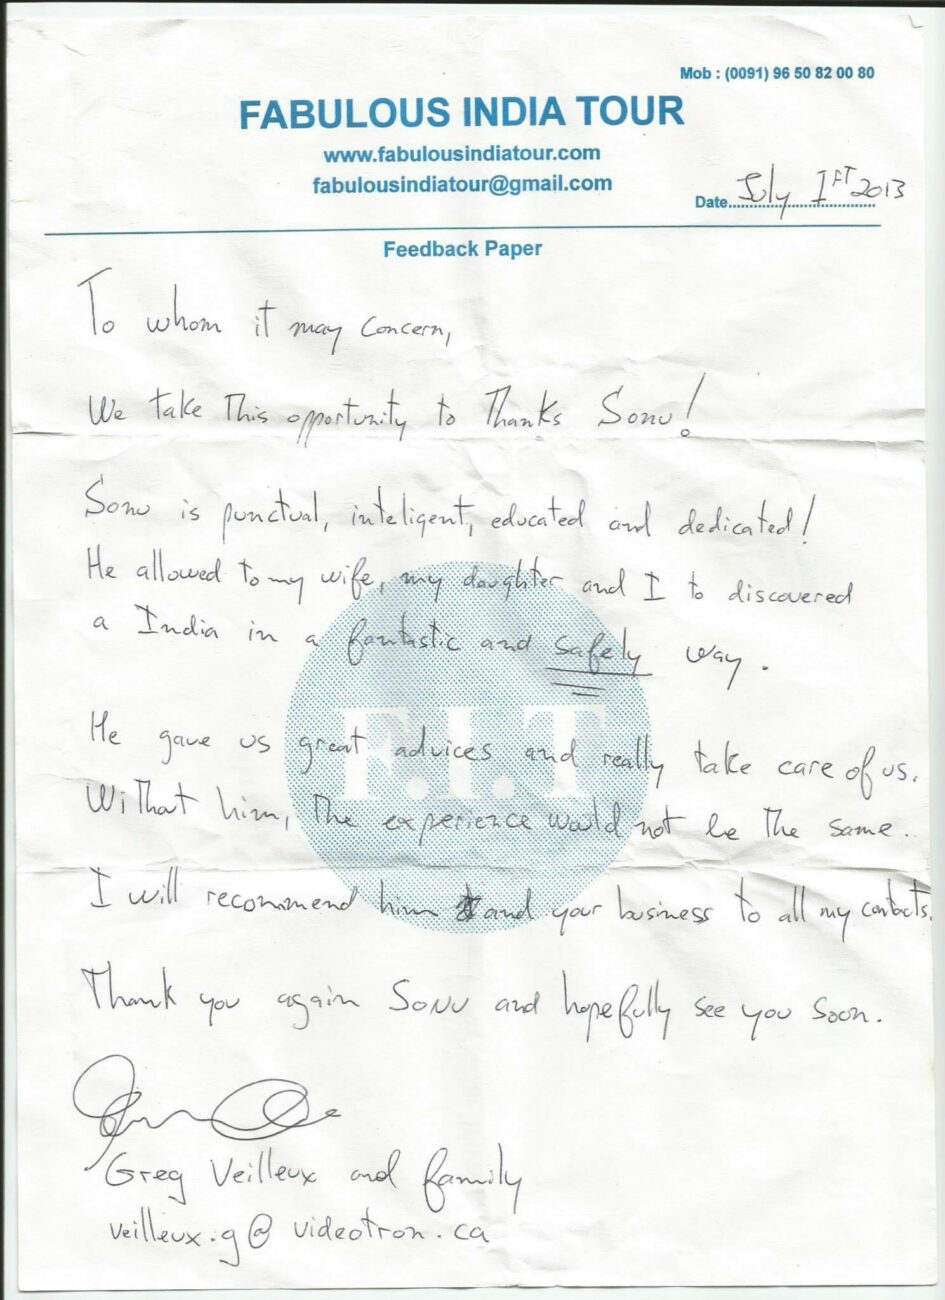 Mob : (0091) 96 50 82 00 80
FABULOUS INDIA TOUR
www.fabulousindiatour.com
fabulousindiatour@gmail.com
Date July 1st 2013
Feedback Paper
To whom it may concern,
We take this opportunity to Thanks Sonu!
Sonu is punctual, inteligent, educated and dedicated!
He allowed to my wife, my daughter and I to discovered
a India in a fantastic and safely way.
He gave us great advices and really take care of us.
Without him, the experience would not be the same.
I will recommend him and your business to all my contacts.
Thank you again Sonu and hopefully see you soon.
Greg Veilleux and family
veilleux.g@videotron.ca
F.I.T